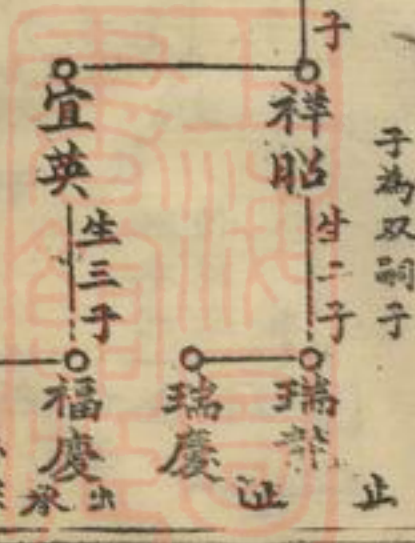 子為双嗣子
子
祥昭
生二子
瑞
止
瑞慶
止
宜英
生三子
福慶
出
承